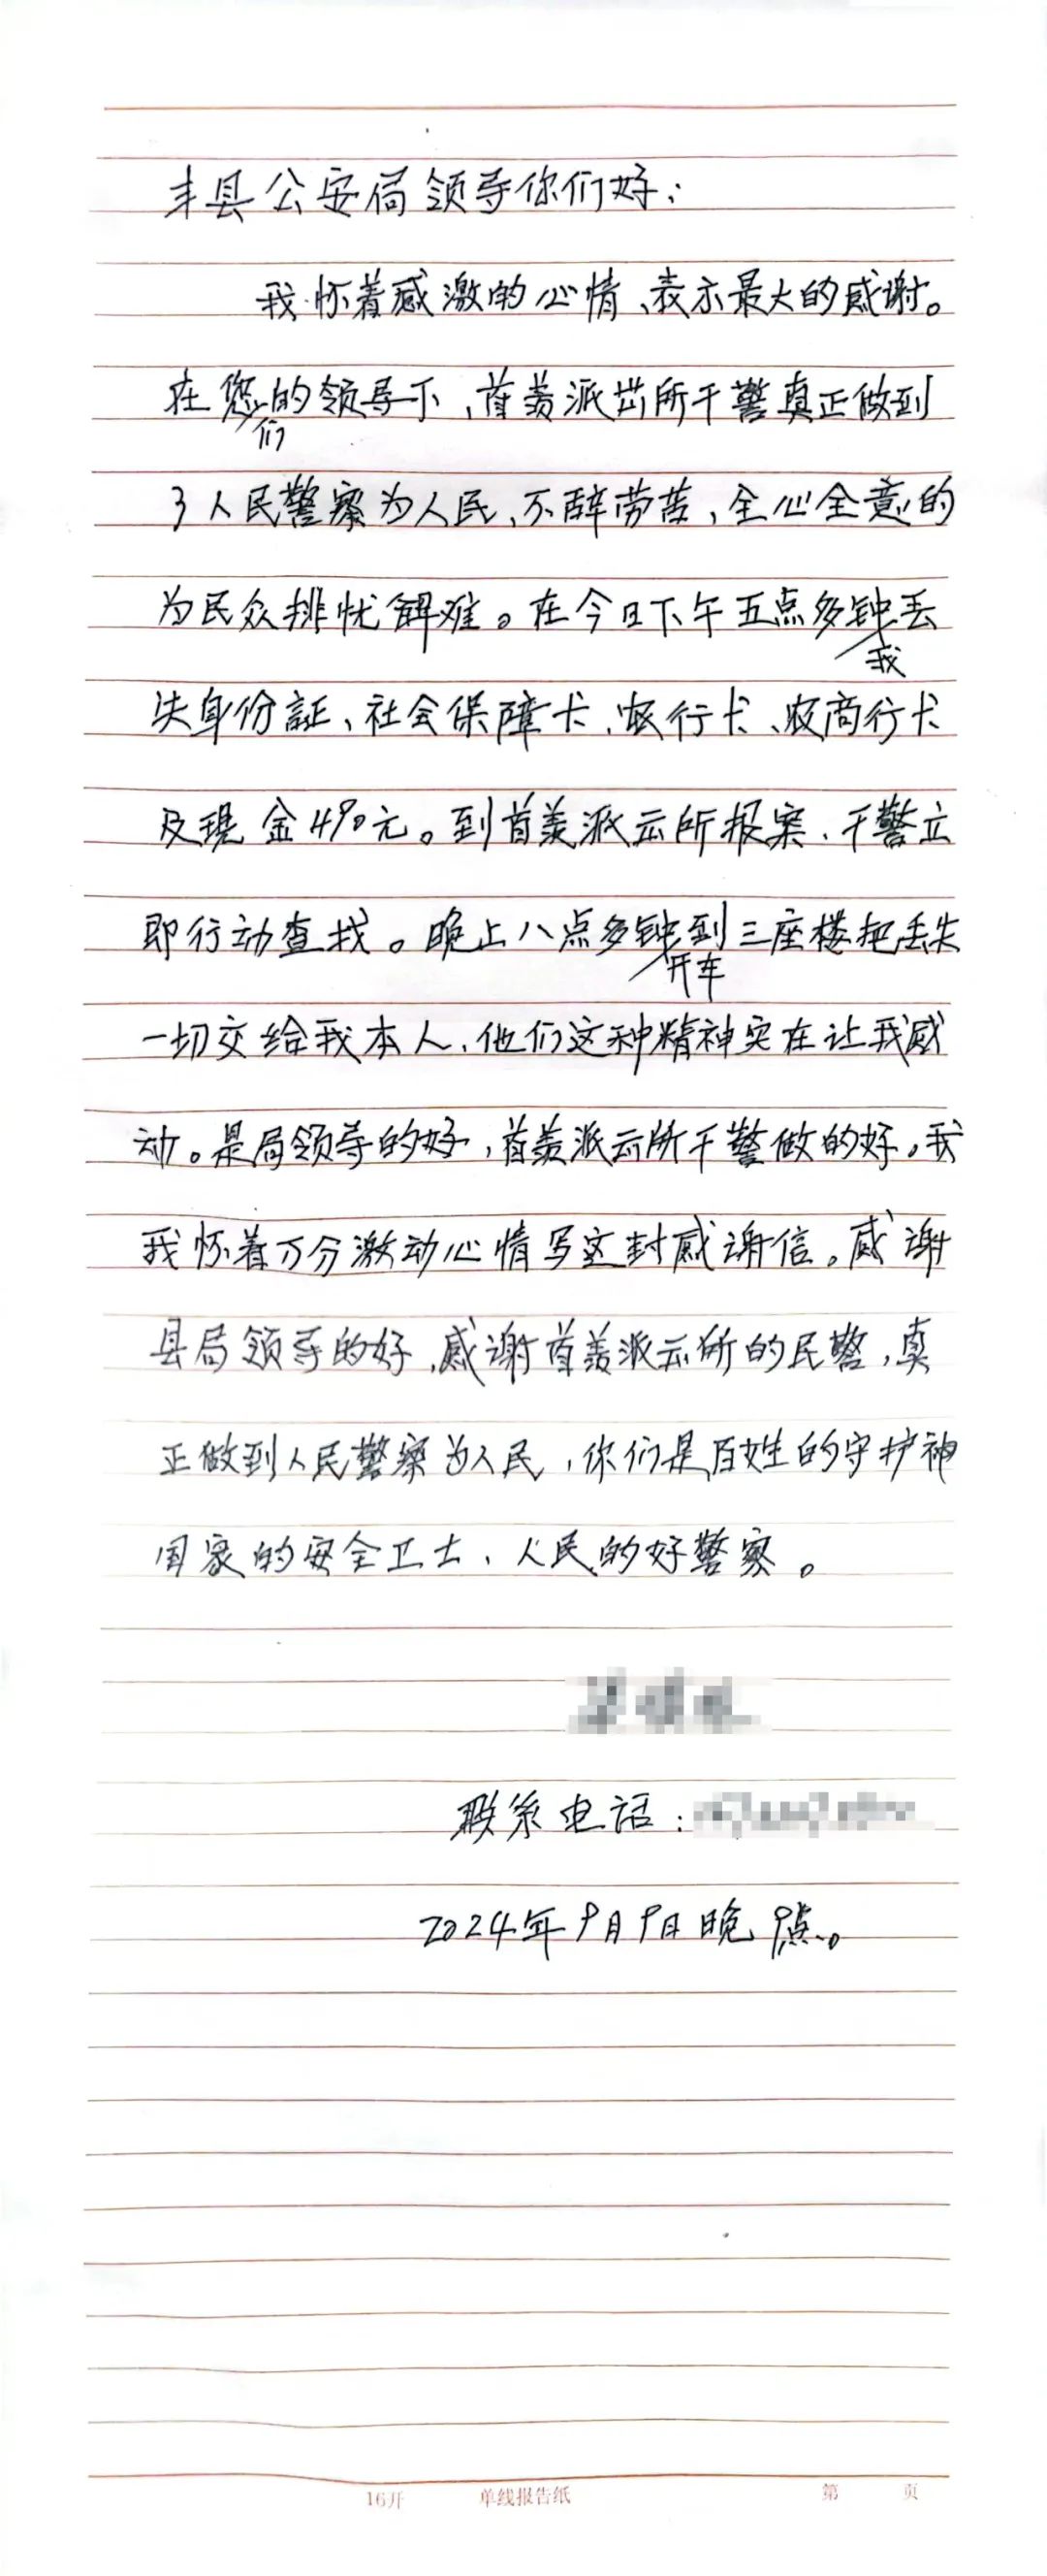 丰县公安局领导你们好：
我怀着感激的心情、表示最大的感谢。
在您们的领导下，首羡派出所干警真正做到
了人民警察为人民、不辞劳苦，全心全意的
为民众排忧解难。在今日下午五点多钟我丢
失身份証、社会保障卡、农行卡、农商行卡
及現金490元。到首羡派出所报案、干警立
即行动查找。晚上八点多钟开车到三座楼把丢失
一切交给我本人、他们这种精神实在让我感
动。是局领导的好，首羡派出所干警做的好。我
我怀着万分激动心情写这封感谢信。感谢
县局领导的好、感谢首羡派出所的民警，真
正做到人民警察为人民，你们是百姓的守护神
国家的安全卫士、人民的好警察。
联系电话：
2024年9月9日晚9点。
16开 单线报告纸 第 页